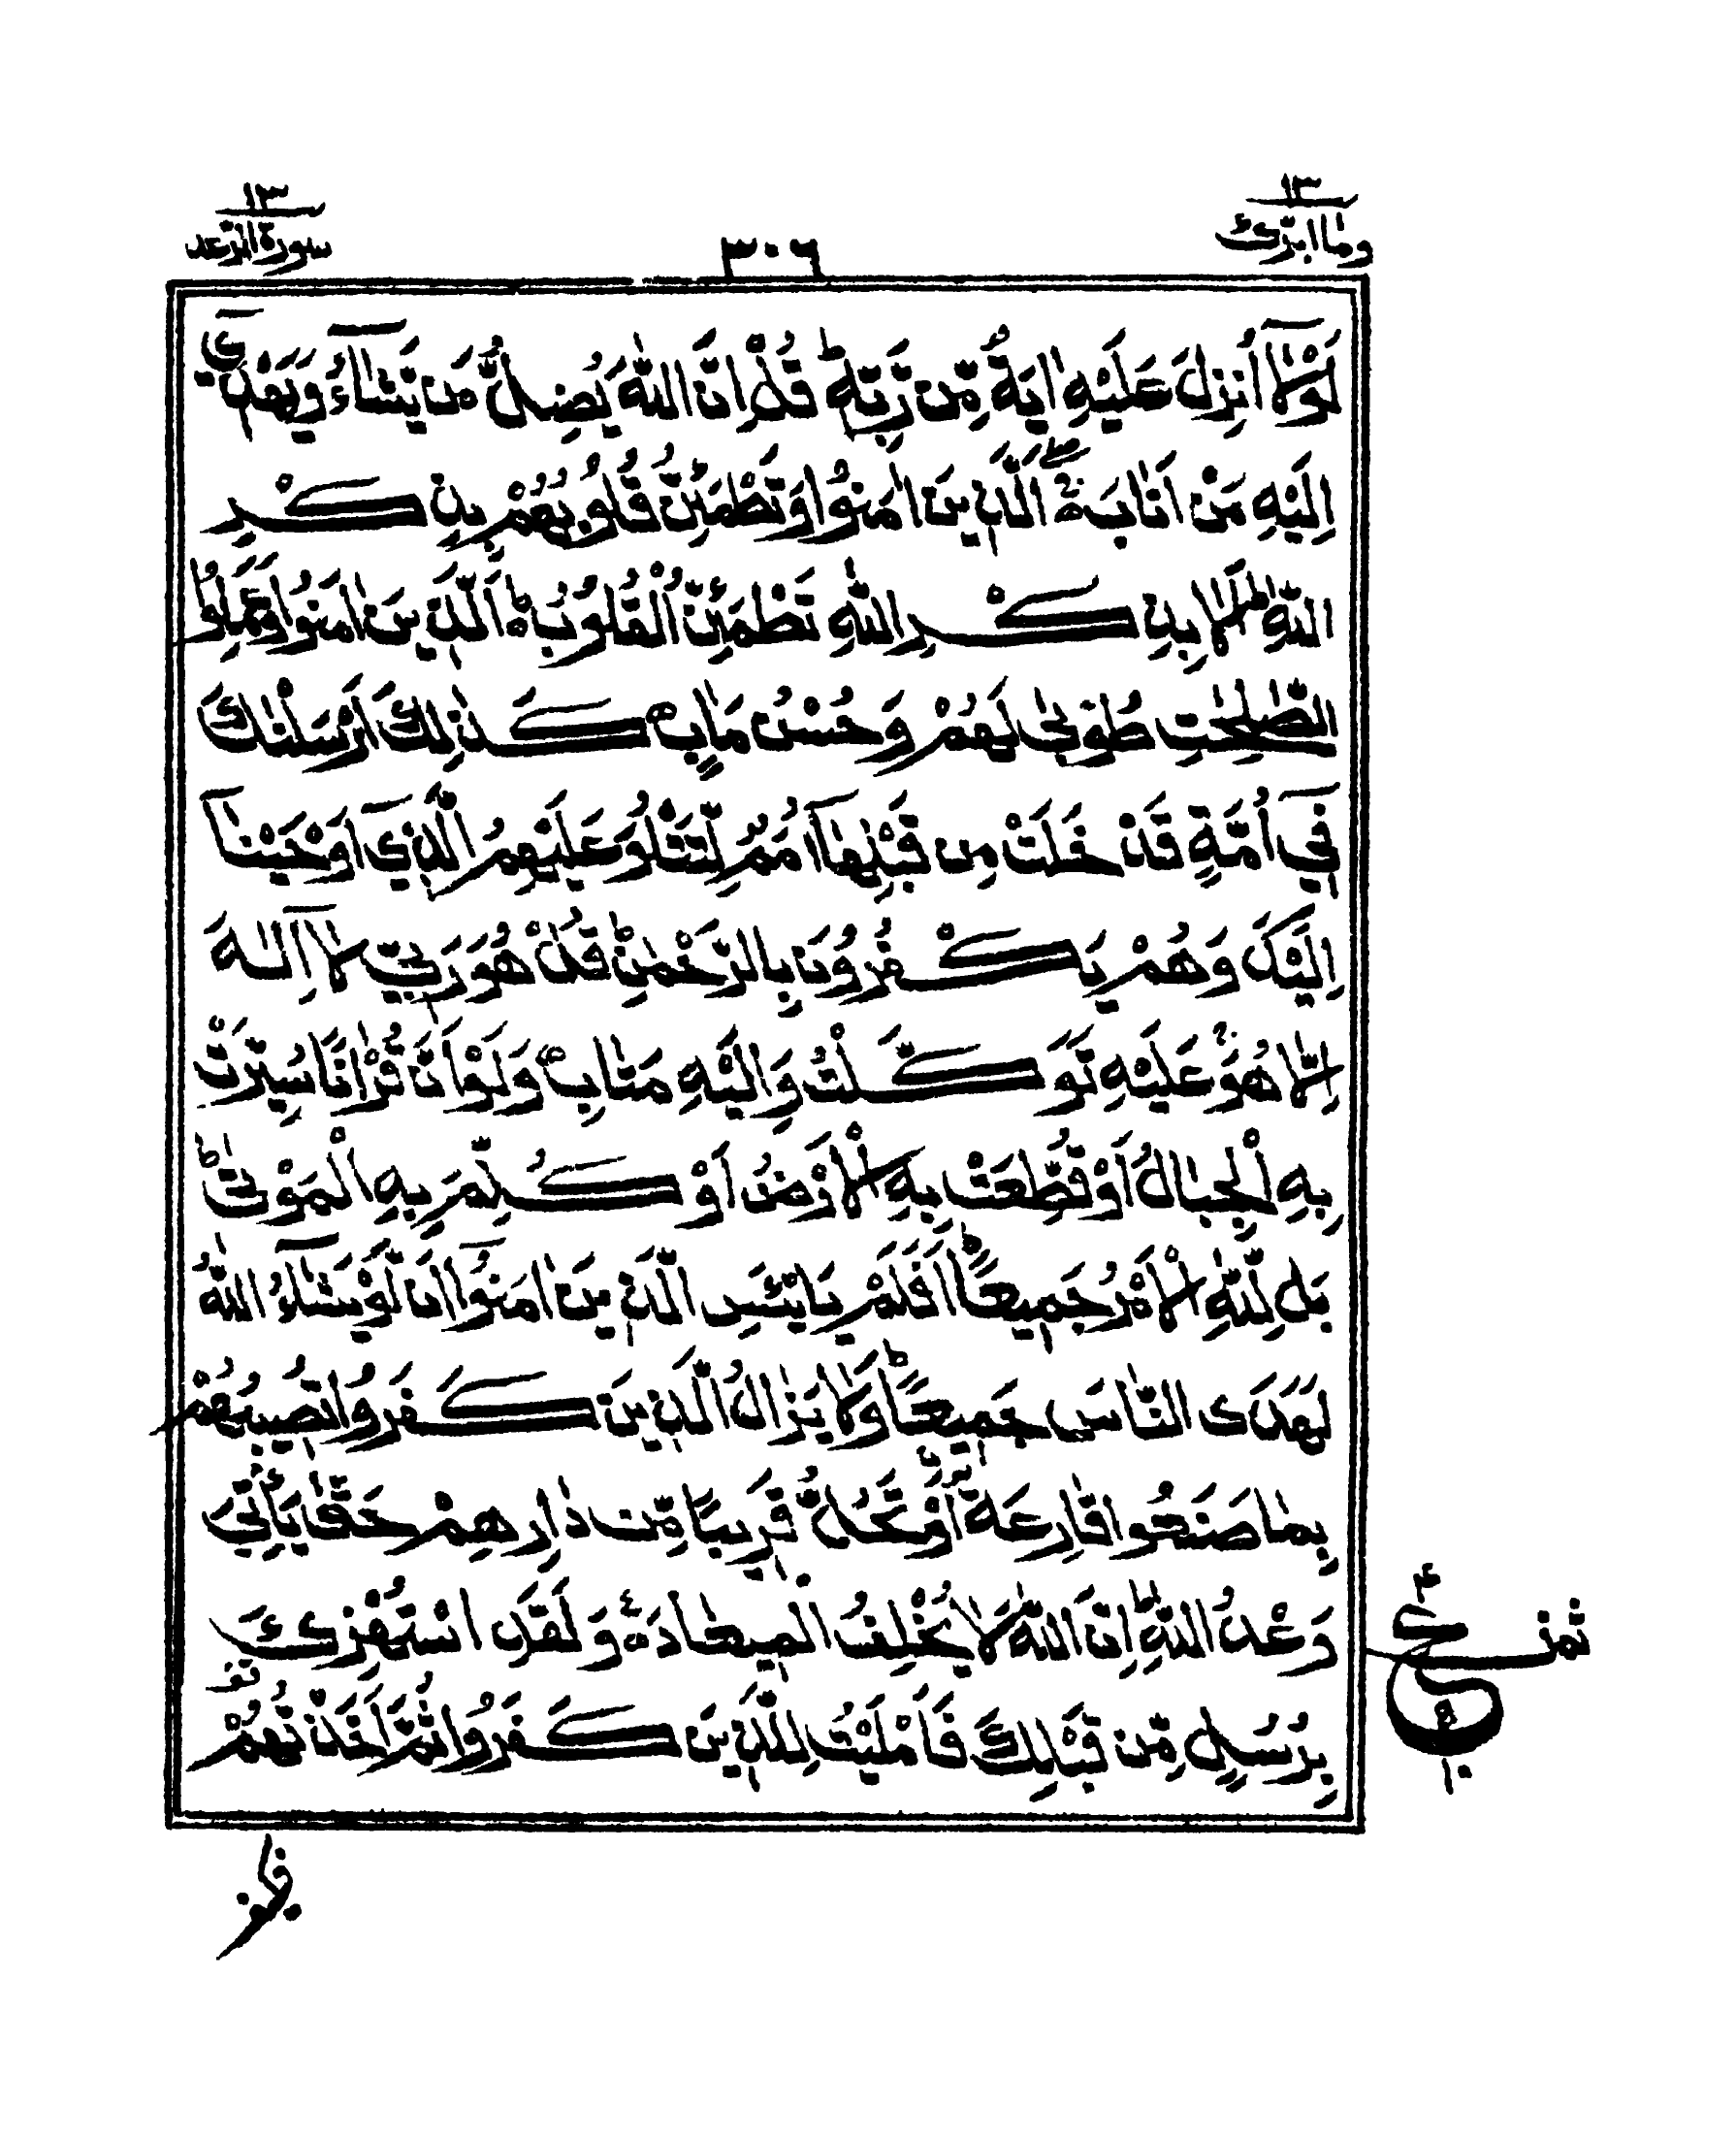 وما ابرئ ١٣
٣٠٦
سورة الرعد ١٣
لَوْلَآ أُنزِلَ عَلَيْهِ اٰيَةٌ مِّن رَّبِّهٖ ؕ قُلْ اِنَّ اللّٰهَ يُضِلُّ مَن يَّشَآءُ وَيَهْدِيٓ
اِلَيْهِ مَنْ اَنَابَ ۚۖ اَلَّذِينَ اٰمَنُوا وَتَطْمَئِنُّ قُلُوبُهُمْ بِذِكْرِ
اللّٰهِ ؕ اَلَا بِذِكْرِ اللّٰهِ تَطْمَئِنُّ الْقُلُوبُ ؕ اَلَّذِينَ اٰمَنُوا وَعَمِلُوا
الصّٰلِحٰتِ طُوبٰى لَهُمْ وَحُسْنُ مَاٰبٍ كَذٰلِكَ اَرْسَلْنٰكَ
فِيٓ اُمَّةٍ قَدْ خَلَتْ مِن قَبْلِهَآ اُمَمٌ لِّتَتْلُوَ عَلَيْهِمُ الَّذِيٓ اَوْحَيْنَآ
اِلَيْكَ وَهُمْ يَكْفُرُونَ بِالرَّحْمٰنِ ؕ قُلْ هُوَ رَبِّي لَآ اِلٰهَ
اِلَّا هُوَ ۚ عَلَيْهِ تَوَكَّلْتُ وَاِلَيْهِ مَتَابِ وَلَوْ اَنَّ قُرْاٰنًا سُيِّرَتْ
بِهِ الْجِبَالُ اَوْ قُطِّعَتْ بِهِ الْاَرْضُ اَوْ كُلِّمَ بِهِ الْمَوْتٰى ؕ
بَل لِّلّٰهِ الْاَمْرُ جَمِيعًا ؕ اَفَلَمْ يَايْـَٔسِ الَّذِينَ اٰمَنُوٓا اَن لَّوْ يَشَآءُ اللّٰهُ
لَهَدَى النَّاسَ جَمِيعًا ؕ وَلَا يَزَالُ الَّذِينَ كَفَرُوا تُصِيبُهُمْ
بِمَا صَنَعُوا قَارِعَةٌ اَوْ تَحُلُّ قَرِيبًا مِّن دَارِهِمْ حَتّٰى يَأْتِيَ
وَعْدُ اللّٰهِ ؕ اِنَّ اللّٰهَ لَا يُخْلِفُ الْمِيعَادَ وَلَقَدِ اسْتُهْزِئَ
بِرُسُلٍ مِّن قَبْلِكَ فَاَمْلَيْتُ لِلَّذِينَ كَفَرُوا ثُمَّ اَخَذْتُهُمْ
ثمن
ع